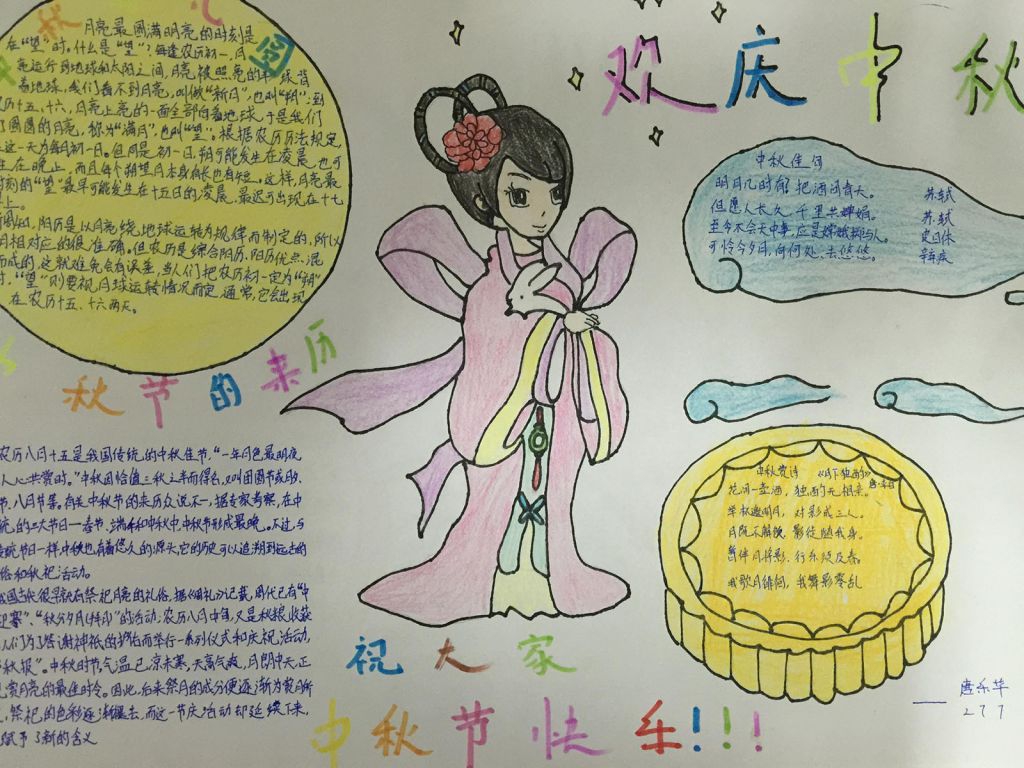 欢庆中秋
秋 心 圆
月亮最圆满明亮的时刻是
在“望”时。什么是“望”？每逢农历初一，月
亮运行到地球和太阳之间，月亮被照亮的半球背
着地球，我们看不到月亮，叫做“新月”，也叫“朔”；到
历十五、十六，月亮上亮的一面全部向着地球，于是我们
了圆圆的月亮，称为“满月”，也叫“望”。根据农历历法规定，
这一天为每月初一日。但同是初一日，朔可能发生在凌晨，也可
生在晚上，而且每个朔望月本身有长也有短。这样，月亮最
时刻的“望”最早可能发生在十五日的凌晨，最迟可出现在十七
上。
周知，阴历是以月亮绕地球运转为规律而制定的，所以
月相对应的很准确。但农历是综合阴历、阳历优点，混
而成的，这就难免会有误差，当人们把农历初一定为“朔”
时，“望”则要视月球运转情况而定，通常，它会出现
在农历十五、十六两天。
秋节的来历
农历八月十五是我国传统的中秋佳节，“一年月色最明夜
人心共赏时。”中秋因恰值三秋之半而得名，又叫团圆节或
节、八月节等，有关中秋节的来历众说不一，据专家考察，在中
统的三大节日—春节、端午和中秋中，中秋节形成最晚。不过，与
统节日一样，中秋也有着悠久的源头，它的历史可以追朔到远古的
俗和秋祀活动。
我国古代很早就有祭祀月亮的礼俗，据《周礼》记载，周代已有“中
迎寒”、“秋分夕月（拜月）”的活动；农历八月中旬，又是秋粮收获
人们为了答谢神祇的护佑而举行一系列仪式和庆祝活动，
秋报”。中秋时节，气温已凉未寒，天高气爽，月朗中天，正
赏月亮的最佳时令。因此，后来祭月的成分便逐渐为赏月所
，祭祀的色彩逐渐褪去，而这一节庆活动却延续下来，
赋予了新的含义
中秋佳句
明月几时有，把酒问青天。 苏轼
但愿人长久，千里共婵娟。 苏轼
至今不会天中事，应是嫦娥掷与人。 皮日休
可怜今夕月，向何处、去悠悠。 辛弃疾
中秋赏诗 《月下独酌》
唐·李白
花间一壶酒，独酌无相亲。
举杯邀明月，对影成三人。
月既不解饮，影徒随我身。
暂伴月将影，行乐须及春。
我歌月徘徊，我舞影零乱
祝大家
中秋节快乐!!!
—— 唐乐华
277